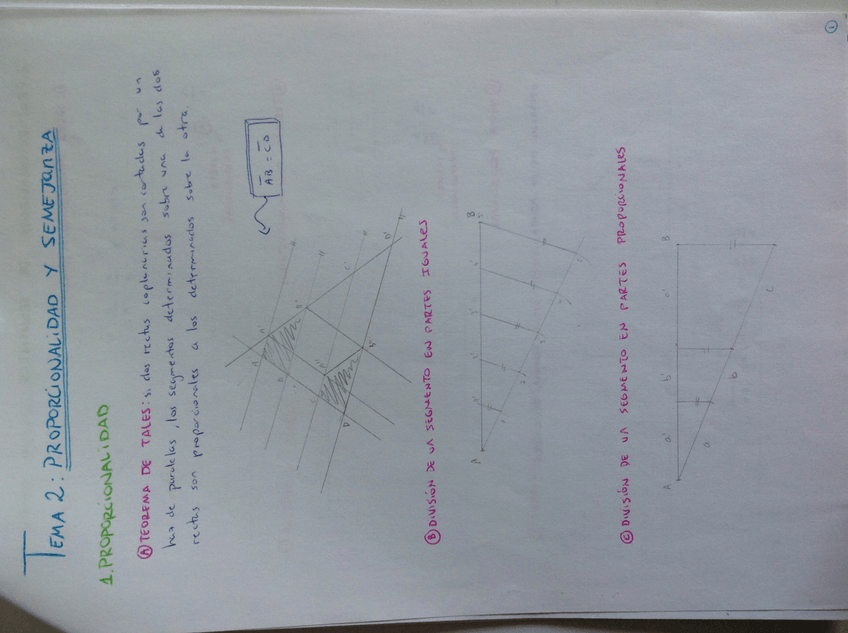 TEMA 2: PROPORCIONALIDAD Y SEMEJANZA
1. PROPORCIONALIDAD
A TEOREMA DE TALES: si dos rectas coplanarias son cortadas por un
haz de paralelas, los segmentos determinados sobre una de las dos
rectas son proporcionales a los determinados sobre la otra.
AB = CD
B DIVISIÓN DE UN SEGMENTO EN PARTES IGUALES
A B
C DIVISIÓN DE UN SEGMENTO EN PARTES PROPORCIONALES
A a' b' c' B
a b c
1